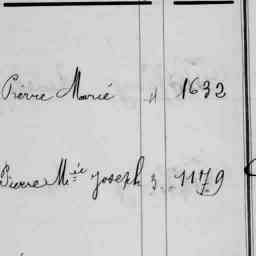 Pierre Marie 4 1632
Pierre Mie Joseph 3 1179